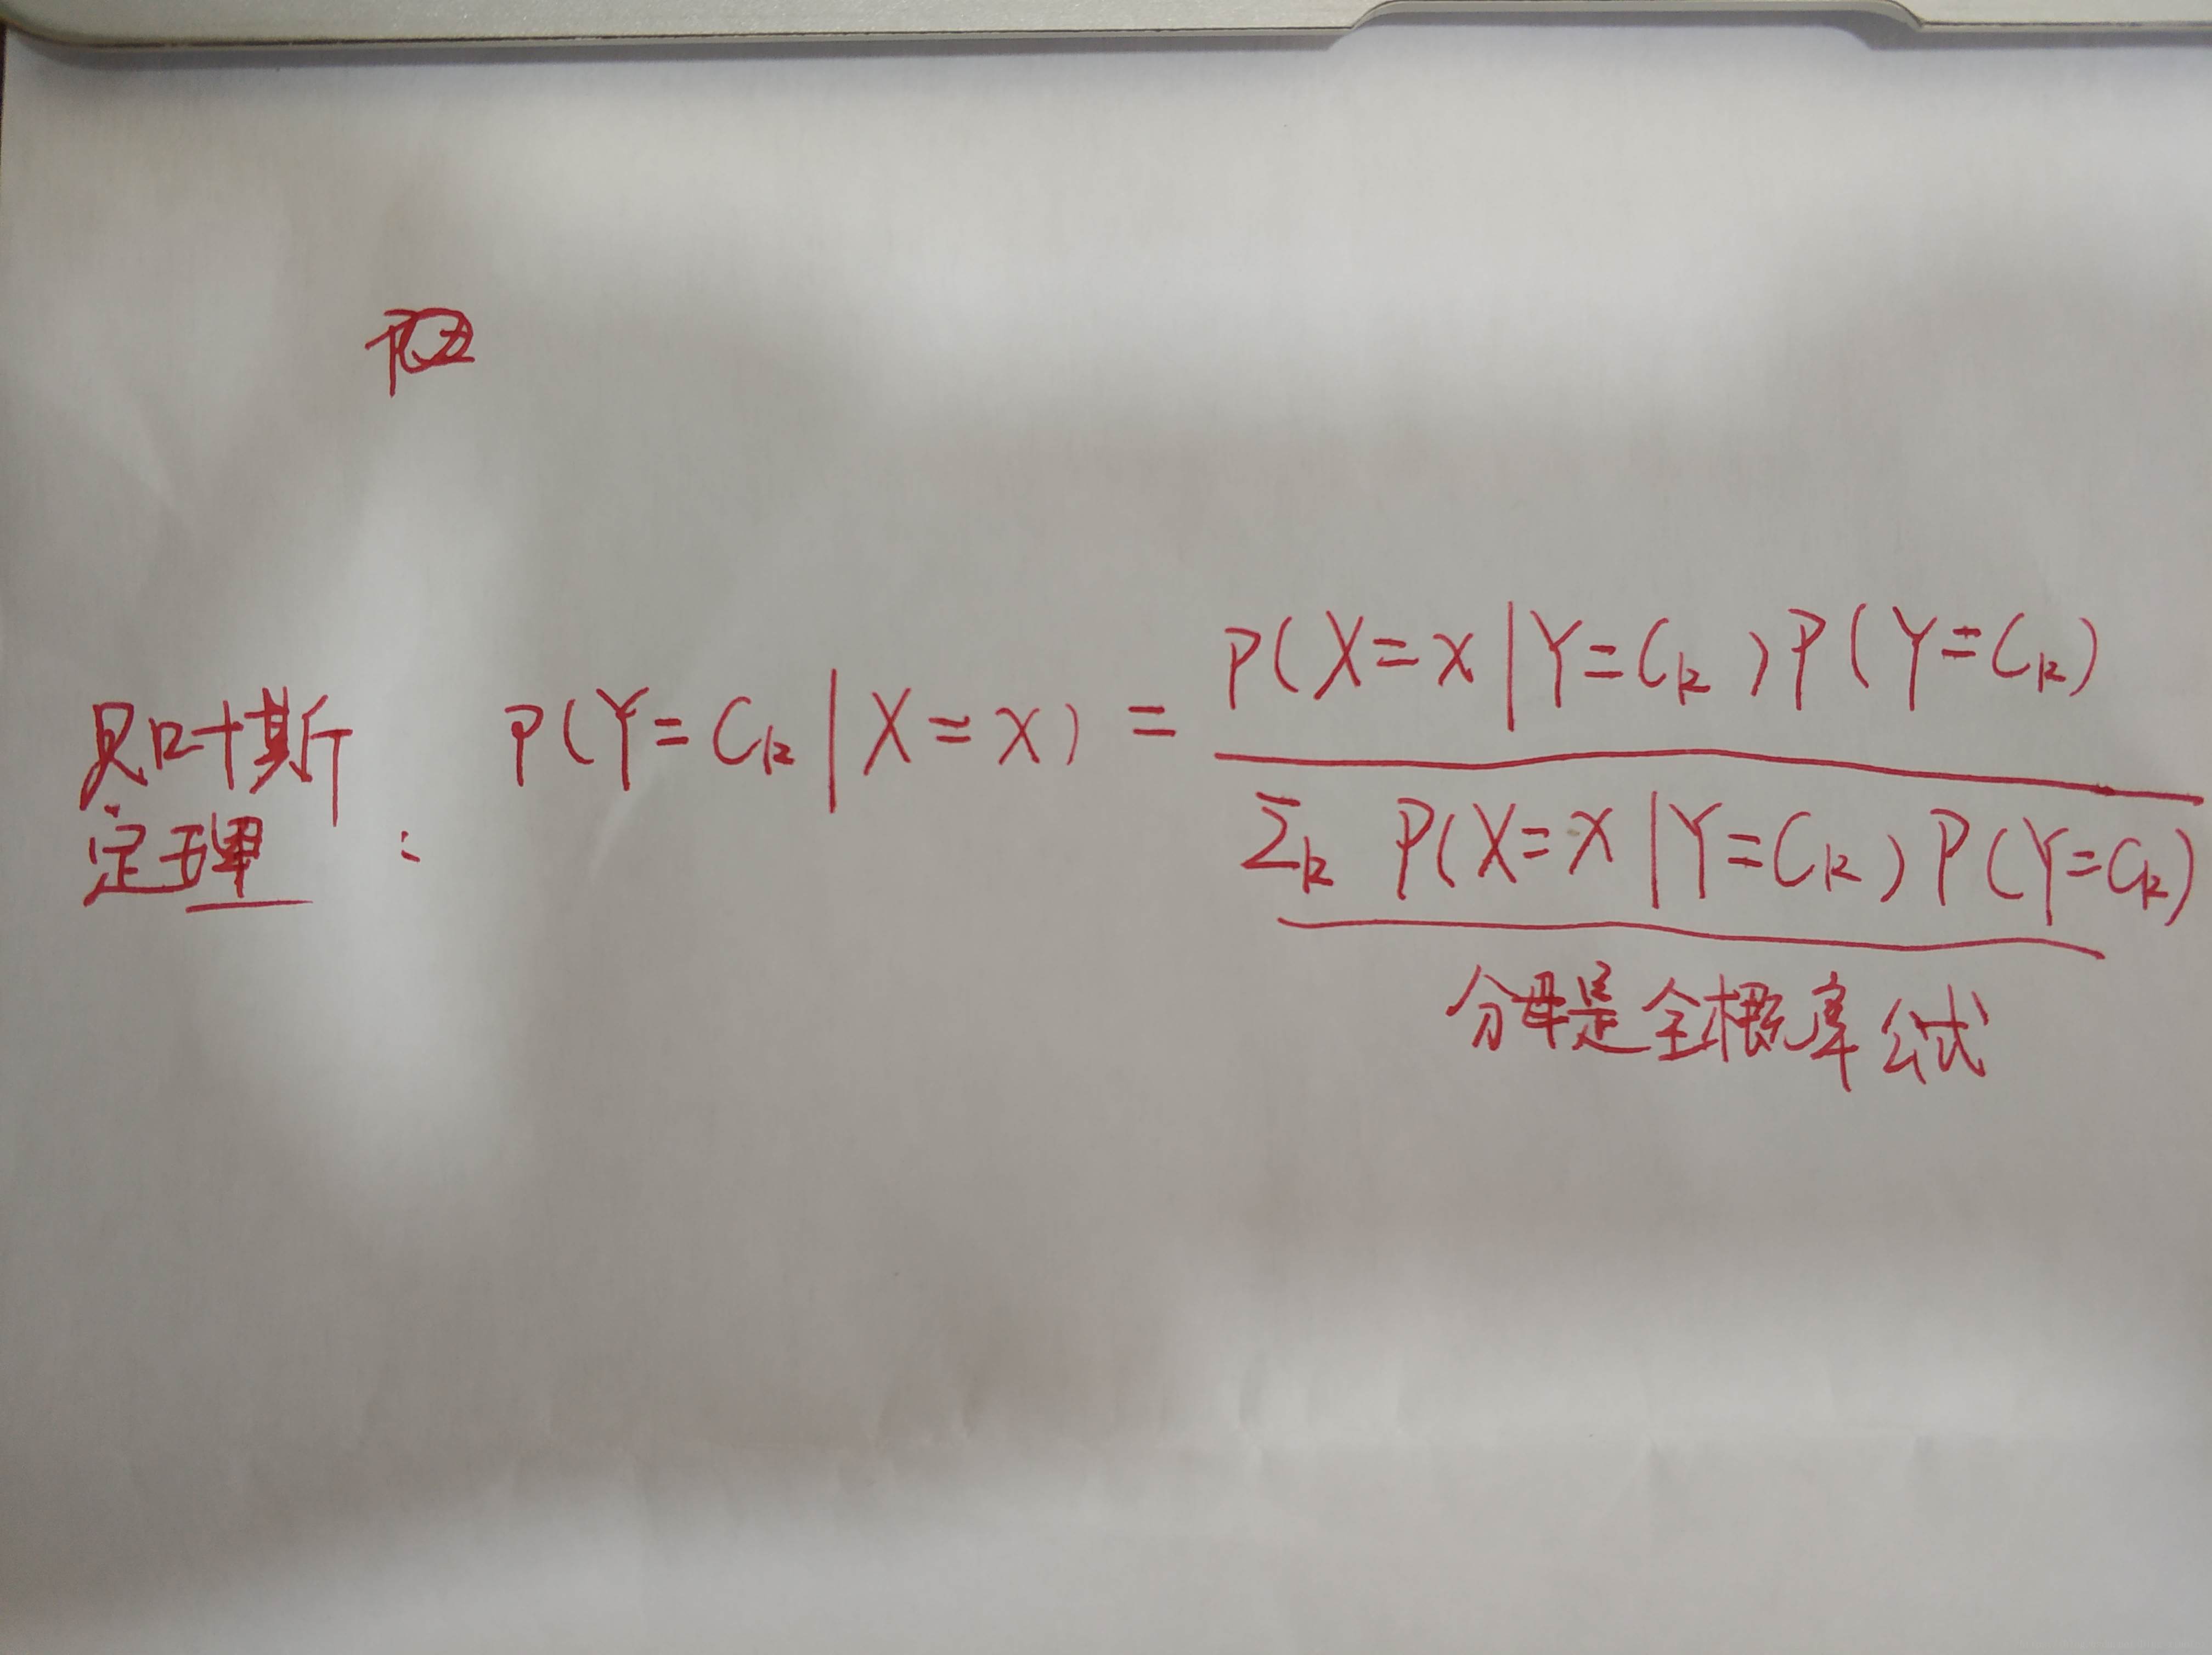 贝叶斯
定理 : P(Y=C_k|X=x) = \frac{P(X=x|Y=C_k)P(Y=C_k)}{\sum_k P(X=x|Y=C_k)P(Y=C_k)}
分母是全概率公式